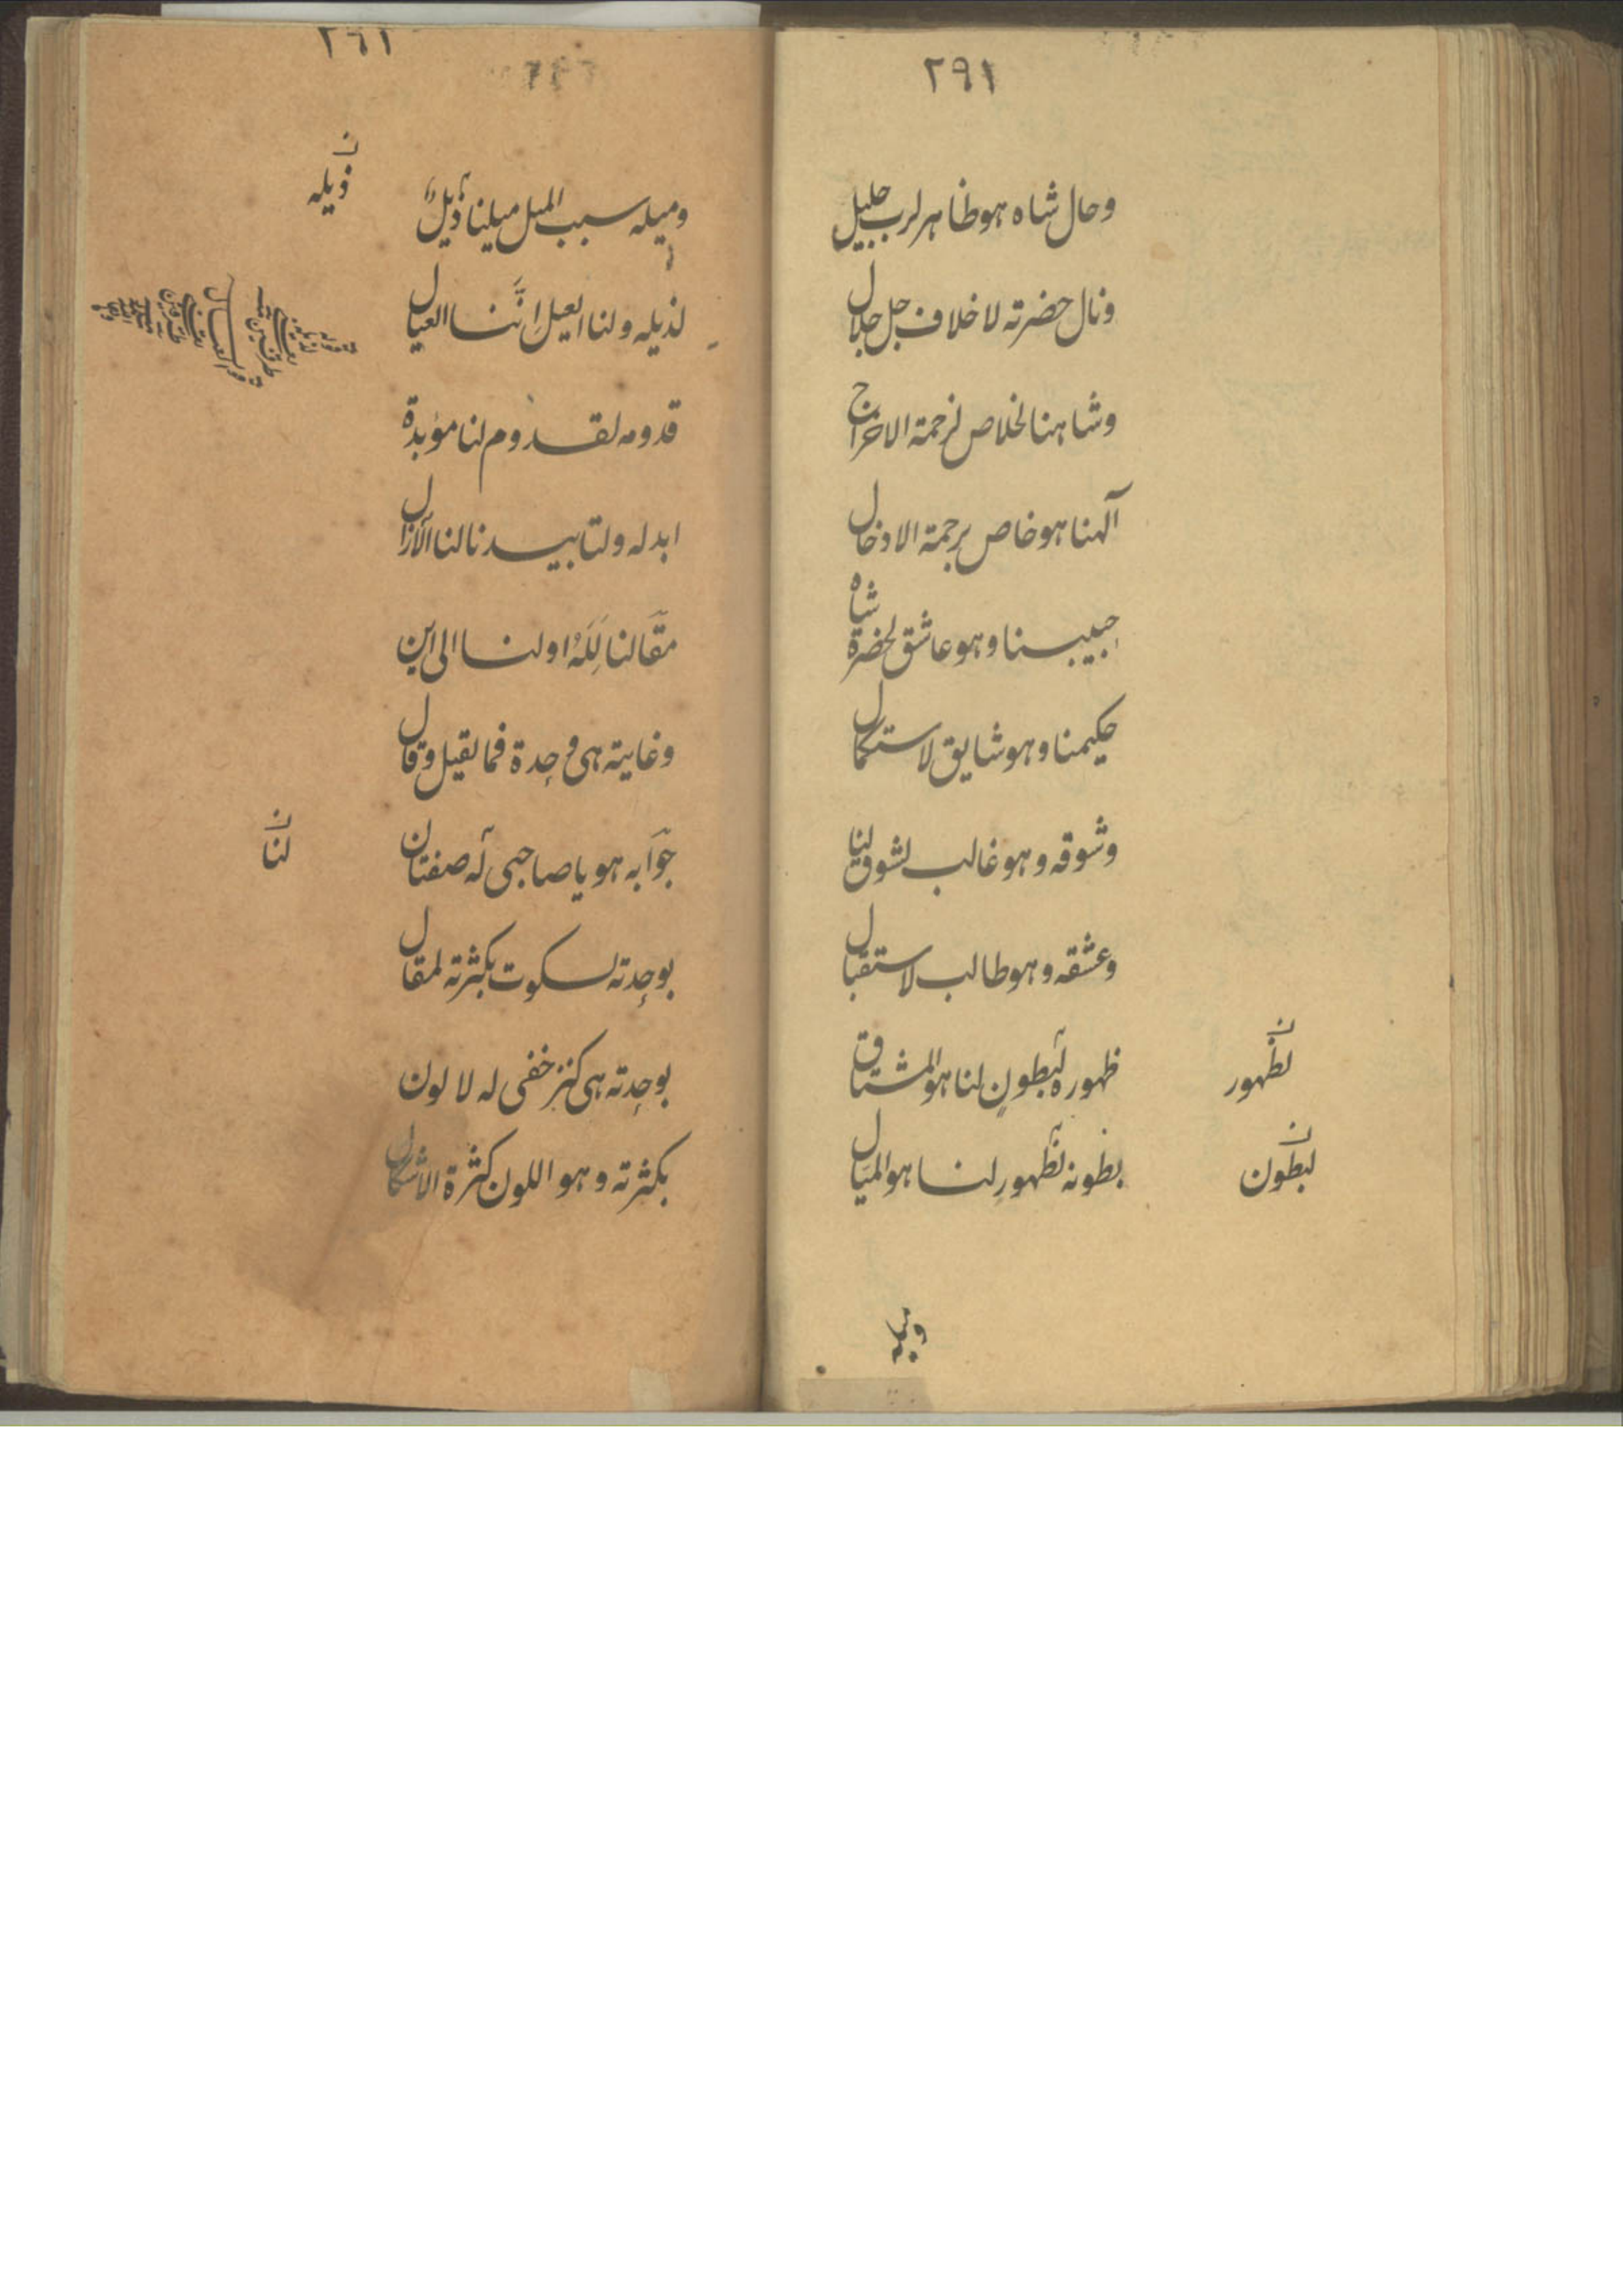 ٢٩١
وحال شاه هو ظاهر لرب جليل
ونال حضرته لا خلاف جل جلال
وشاهنا لخلاص لزحمة الاخراج
آلهنا هو خاص برحمة الادخال
حبيبنا وهو عاشق لحضرة شاه
حكيمنا وهو شايق لاستكمال
وشوقه وهو غالب لشوق لنا
وعشقه وهو طالب لاستقبال
ظهوره لبطونٍ لنا هو المشتاق
لظهور
بطونه لظهورٍ لنا هو الميال
لبطون
وميله
٢٦١
وميله سبب الميل ميلنا ذيلٌ
ذيله
لذيله ولنا العيل اِنَّنا العيال
قدومه لقدوم لنا مؤبدة
ابد له ولتابيدنا لنا الآزال
مقالنا لِلَهُ او لنا الى اين
وغايته هى وحدة فما لقيل وقال
جوابه هو يا صاحبى له صفتان
لنا
بوحدته لسكوت بكثرته لمقال
بوحدته هى كنز خفى له لا لون
بكثرته وهو اللون كثرة الاشكال